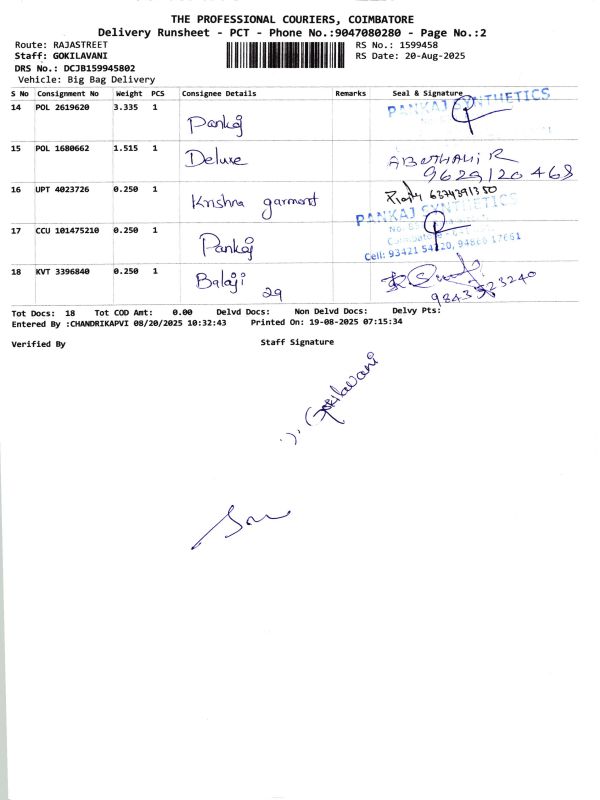 THE PROFESSIONAL COURIERS, COIMBATORE
Delivery Runsheet - PCT - Phone No.:9047080280 - Page No.:2
Route: RAJASTREET RS No.: 1599458
Staff: GOKILAVANI RS Date: 20-Aug-2025
DRS No.: DCJB159945802
Vehicle: Big Bag Delivery
S No Consignment No Weight PCS Consignee Details Remarks Seal & Signature
14 POL 2619620 3.335 1 Pankaj PANKAJ SYNTHETICS
15 POL 1680662 1.515 1 Deluxe
9629120468
16 UPT 4023726 0.250 1 Krishna garment 6374391350
17 CCU 101475210 0.250 1 Pankaj PANKAJ SYNTHETICS
Cell: 93421 54120, 94866 17661
18 KVT 3396840 0.250 1 Balaji
29
Tot Docs: 18 Tot COD Amt: 0.00 Delvd Docs: Non Delvd Docs: Delvy Pts:
Entered By :CHANDRIKAPVI 08/20/2025 10:32:43 Printed On: 19-08-2025 07:15:34
Verified By Staff Signature
Gokilavani